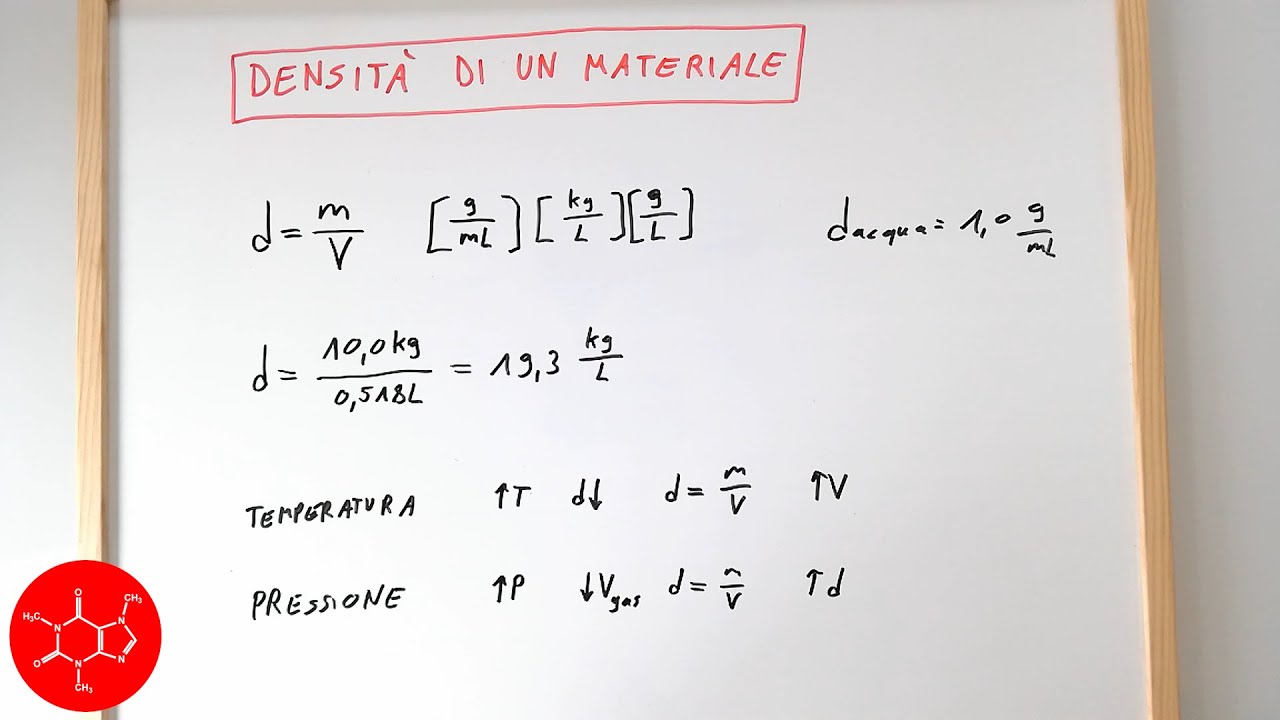 DENSITÀ DI UN MATERIALE
d = m/V [g/mL] [kg/L] [g/L] dacqua = 1,0 g/mL
d = 10,0kg/0,518L = 19,3 kg/L
TEMPERATURA ↑T d↓ d = m/V ↑V
PRESSIONE ↑P ↓Vgas d = m/V ↑d
O CH₃
H₃C N N
O N N
CH₃